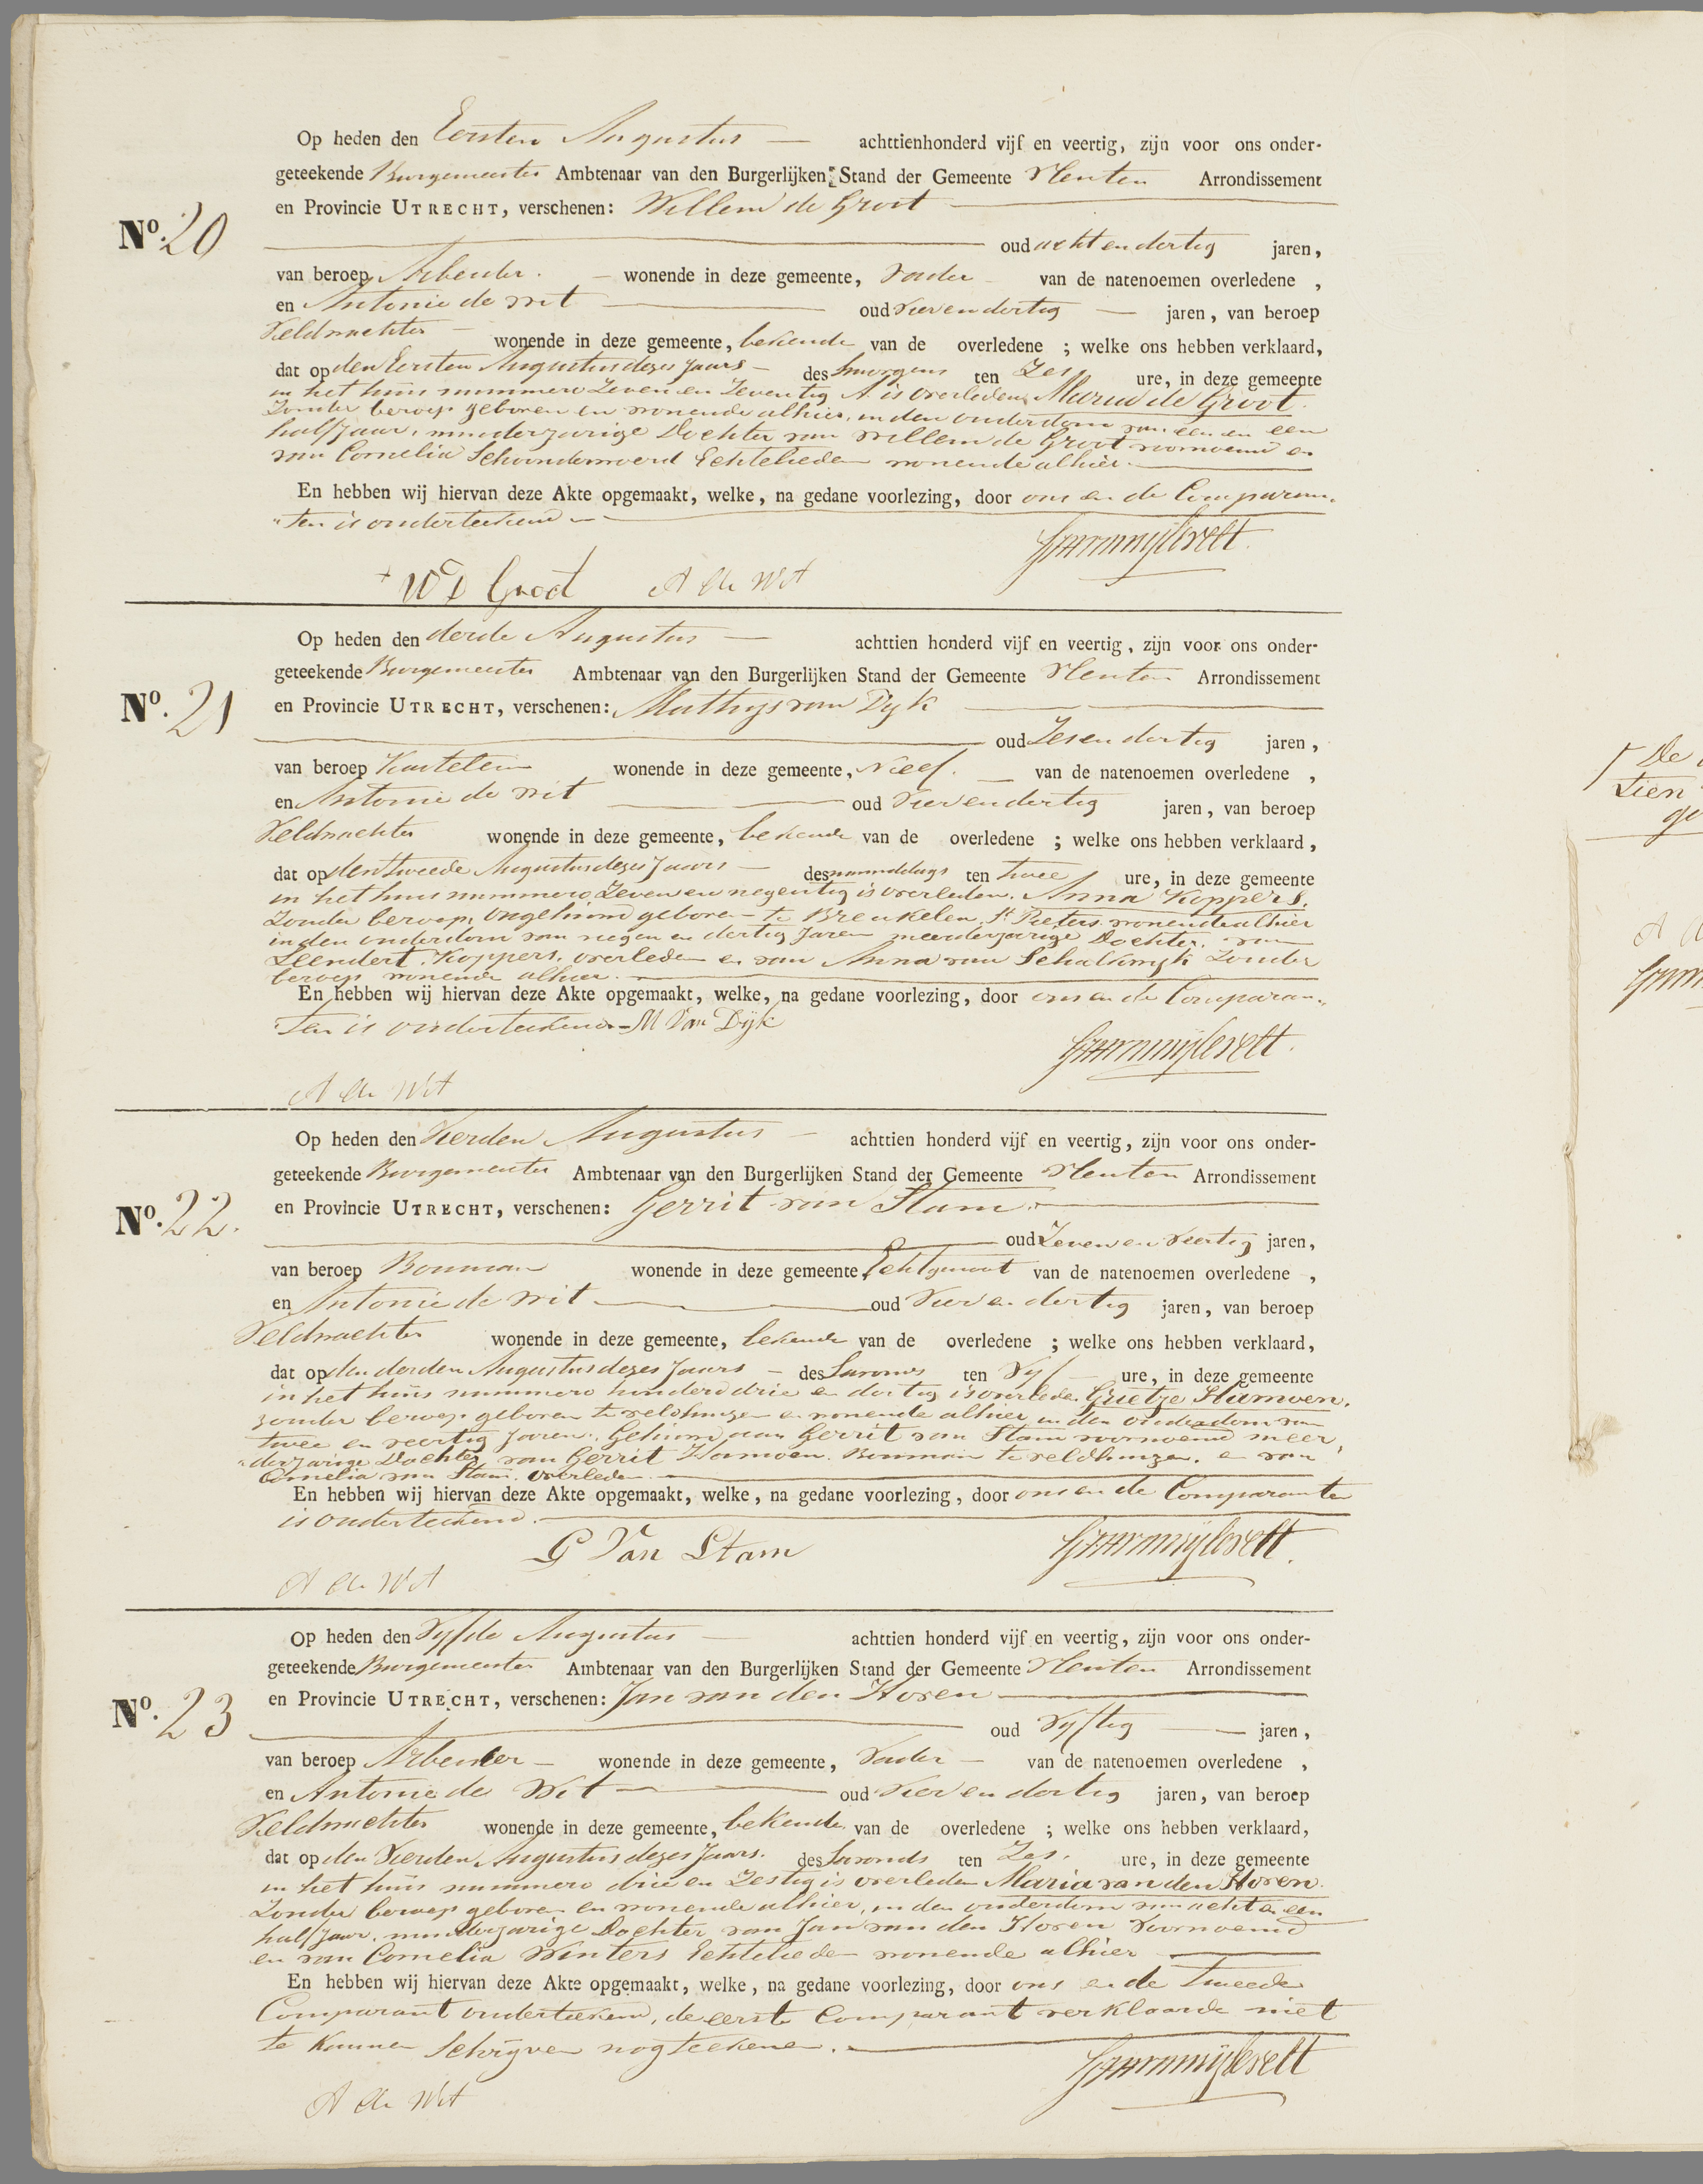 Op heden den Eersten Augustus — achttienhonderd vijf en veertig, zijn voor ons onder-
geteekende Burgemeester Ambtenaar van den Burgerlijken Stand der Gemeente Vleuten Arrondissement
en Provincie UTRECHT, verschenen: Willem de Groot —
No. 20
oud acht en dertig jaren,
van beroep Arbeider. — wonende in deze gemeente, Vader — van de natenoemen overledene ,
en Antonie de Wit — oud Vier en dertig — jaren, van beroep
Veldwachter — wonende in deze gemeente, bekende van de overledene ; welke ons hebben verklaard,
dat op den Eersten Augustus dezes Jaars — des Smorgens ten Zes ure, in deze gemeente
in het huis nummero Zeven en Zeventig A is overleden Maria de Groot.
Zonder beroep geboren en wonende alhier, in den ouderdom van een en een
half Jaar, minderjarige Dochter van Willem de Groot voornoemd en
van Cornelia Schoonderwoerd Echtelieden wonende alhier. —
En hebben wij hiervan deze Akte opgemaakt, welke, na gedane voorlezing, door ons en de Comparan-
"ten is onderteekend —
W D Groot A de Wit
Op heden den derde Augustus — achttien honderd vijf en veertig, zijn voor ons onder-
geteekende Burgemeester Ambtenaar van den Burgerlijken Stand der Gemeente Vleuten Arrondissement
No. 21 en Provincie UTRECHT, verschenen: Mathys van Dyk —
oud Zes en dertig jaren,
van beroep Kastelein wonende in deze gemeente, Neef. — van de natenoemen overledene ,
en Antonie de Wit — oud Vier en dertig jaren, van beroep
Veldwachter wonende in deze gemeente, bekende van de overledene ; welke ons hebben verklaard,
dat op den tweede Augustus dezes Jaars — des namiddags ten twee ure, in deze gemeente
in het huis nummero Zeven en negentig is overleden. Anna Koppers.
Zonder beroep, Ongehuwd geboren te Breukelen St Pieters wonende alhier
in den ouderdom van negen en dertig Jaren meerderjarige Dochter. van
Leendert Koppers. overleden en van Anna van Schalkwyk Zonder
beroep wonende alhier. —
En hebben wij hiervan deze Akte opgemaakt, welke, na gedane voorlezing, door ons en de Comparan-
"ten is onderteekend — M Van Dijk
A de Wit
Op heden den Vierden Augustus — achttien honderd vijf en veertig, zijn voor ons onder-
geteekende Burgemeester Ambtenaar van den Burgerlijken Stand der Gemeente Vleuten Arrondissement
No. 22. en Provincie UTRECHT, verschenen: Gerrit van Stam. —
oud Zeven en Veertig jaren,
van beroep Bouwman wonende in deze gemeente, Echtgenoot van de natenoemen overledene ,
en Antonie de Wit — oud Vier en dertig jaren, van beroep
Veldwachter wonende in deze gemeente, bekende van de overledene ; welke ons hebben verklaard,
dat op den derden Augustus dezes Jaars — des Savonds ten Vyf — ure, in deze gemeente
in het huis nummero honderd drie en dertig is overleden Grietje Hamoen.
zonder beroep geboren te Veldhuizen en wonende alhier in den ouderdom van
twee en veertig Jaren. Gehuwd aan Gerrit van Stam voornoemd meer
"derjarige Dochter van Gerrit Hamoen. Bouwman te Veldhuizen. en van
Cornelia van Stam. Overleden. —
En hebben wij hiervan deze Akte opgemaakt, welke, na gedane voorlezing, door ons en de Comparanten
is onderteekend. —
G Van Stam
A de Wit
Op heden den Vyfde Augustus — achttien honderd vijf en veertig, zijn voor ons onder-
geteekende Burgemeester Ambtenaar van den Burgerlijken Stand der Gemeente Vleuten Arrondissement
No. 23 en Provincie UTRECHT, verschenen: Jan van den Hoven —
oud Vyftig — jaren,
van beroep Arbeider — wonende in deze gemeente, Vader — van de natenoemen overledene ,
en Antonie de Wit — oud Vier en dertig jaren, van beroep
Veldwachter wonende in deze gemeente, bekende van de overledene ; welke ons hebben verklaard,
dat op den Vierden Augustus dezes Jaars. des Savonds ten Zes. ure, in deze gemeente
in het huis nummero drie en Zestig is overleden Maria van den Hoven.
Zonder beroep geboren en wonende alhier, in den ouderdom van acht en een
half Jaar, minderjarige Dochter van Jan van den Hoven Voornoemd
en van Cornelia Winters Echtelieden wonende alhier —
En hebben wij hiervan deze Akte opgemaakt, welke, na gedane voorlezing, door ons en de Tweede
Comparant onderteekend, de eerste Comparant verklaarde niet
te Kunnen Schrijven nog teekenen. —
A de Wit
De
tien
ge
A